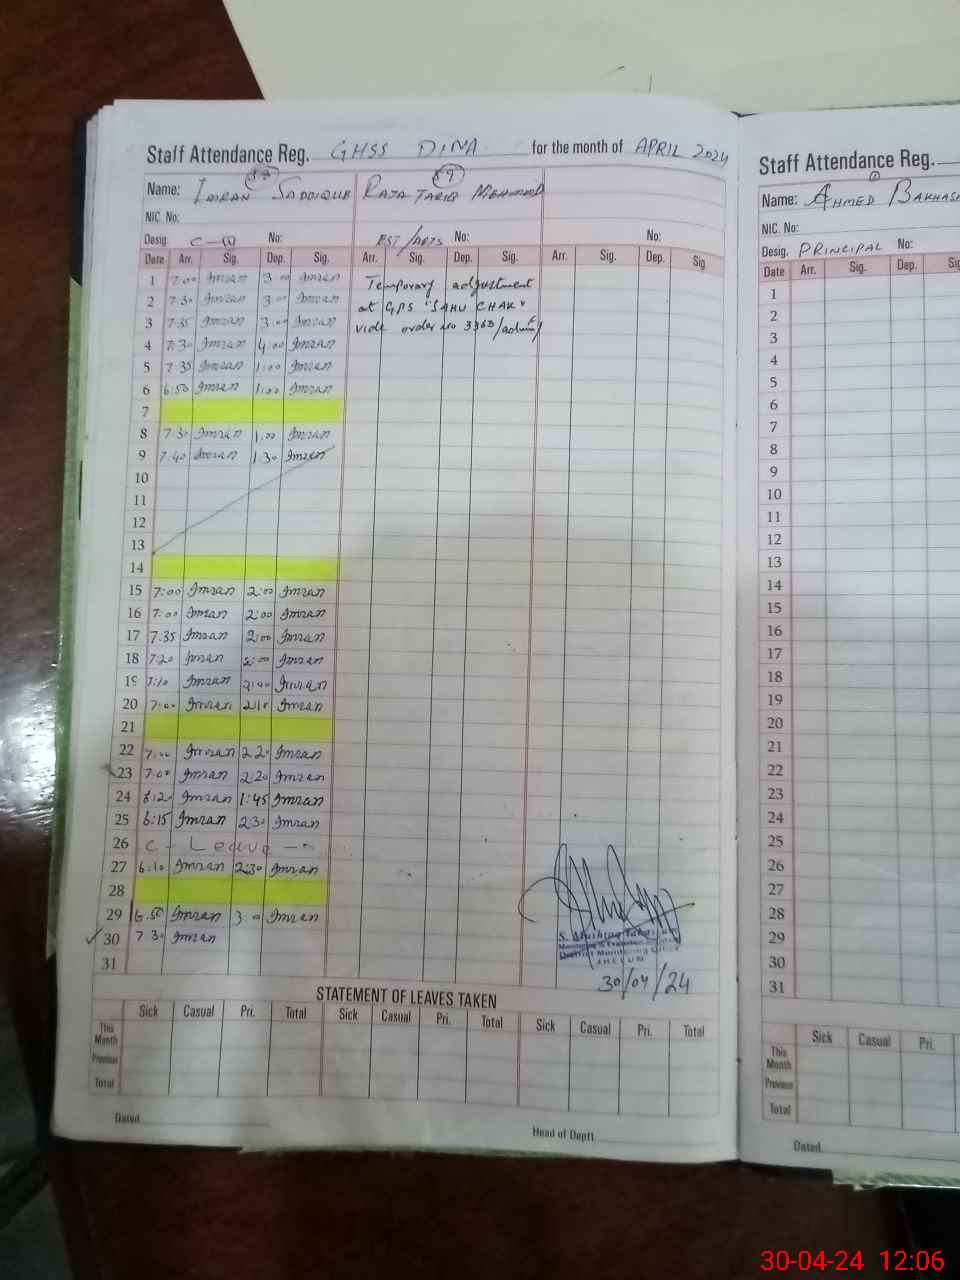 Staff Attendance Reg. GHSS DINA for the month of APRIL 2024
Name: IMRAN SADDIQUE RAJA TARIQ MEHMOOD
NIC. No:
Desig. No: PST/ARTS No: No:
Date Arr. Sig. Dep. Sig. Arr. Sig. Dep. Sig. Arr. Sig. Dep. Sig.
1 7:00 Imran 3:00 Imran Temporary adjustment
2 7:30 Imran 3:00 Imran at GPS "SAHU CHAK"
3 7:35 Imran 3:00 Imran vide order no 3363/admn
4 7:30 Imran 4:00 Imran
5 7:35 Imran 1:00 Imran
6 6:50 Imran 1:00 Imran
7
8 7:30 Imran 1:00 Imran
9 7:40 Imran 1:30 Imran
10
11
12
13
14
15 7:00 Imran 2:00 Imran
16 7:00 Imran 2:00 Imran
17 7:35 Imran 2:00 Imran
18 7:20 Imran 2:00 Imran
19 7:10 Imran 2:00 Imran
20 7:00 Imran 2:10 Imran
21
22 7:00 Imran 2:20 Imran
23 7:00 Imran 2:20 Imran
24 Imran 1:45 Imran
25 6:15 Imran 2:30 Imran
26 C - Leave
27 6:10 Imran 2:30 Imran
28
29 6:50 Imran 3:0 Imran
30 7:30 Imran
31
District Monitoring Office
JHELUM
30/04/24
STATEMENT OF LEAVES TAKEN
Sick Casual Pri. Total Sick Casual Pri. Total Sick Casual Pri. Total
This Month
Previous
Total
Dated
Head of Deptt.
Staff Attendance Reg.
Name: AHMED BAKHASH
NIC. No:
Desig. PRINCIPAL No:
Date Arr. Sig. Dep.
1
2
3
4
5
6
7
8
9
10
11
12
13
14
15
16
17
18
19
20
21
22
23
24
25
26
27
28
29
30
31
Sick Casual Pri.
This Month
Previous
Total
Dated
30-04-24 12:06